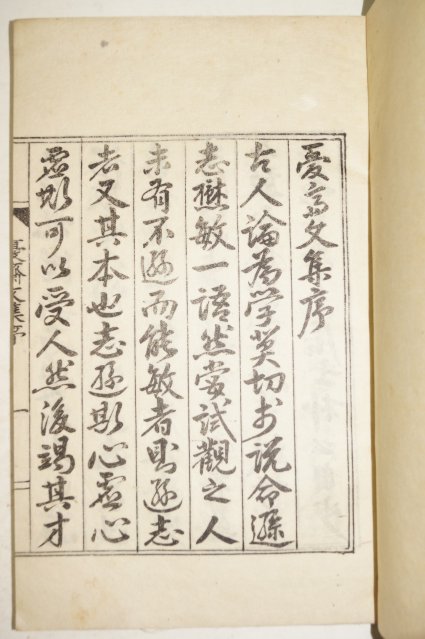 齋文集序
古人論為學莫切於說命遜
志懋敏一語然嘗試觀之人
未有不遜而能敏者則遜志
者又其本也志遜斯心虛心
虛斯可以受人然後竭其才
齋文集序
一